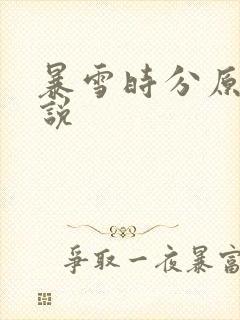 暴雪時分原
說
爭取一夜暴富